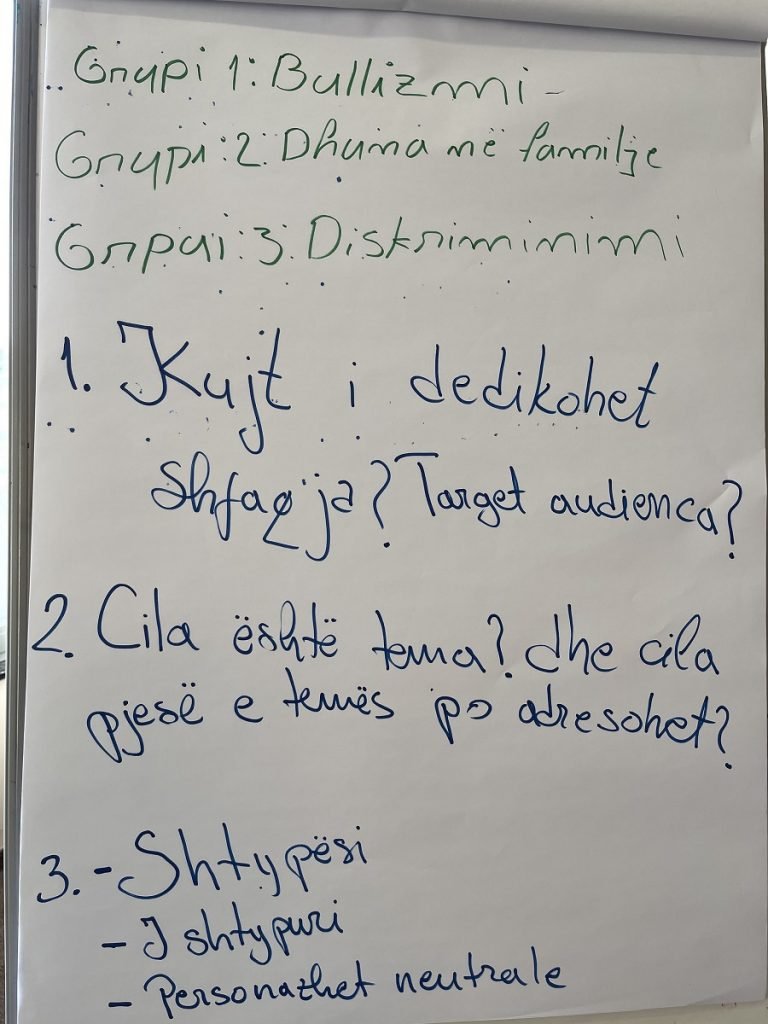 Grupi 1: Bullizmi -
Grupi: 2: Dhuna në familje
Grpui: 3: Diskriminimi
1. Kujt i dedikohet
shfaqja? Target audienca?
2. Cila është tema? dhe cila
pjesë e temës po adresohet?
3. - Shtypësi
- I shtypuri
- Personazhet neutrale